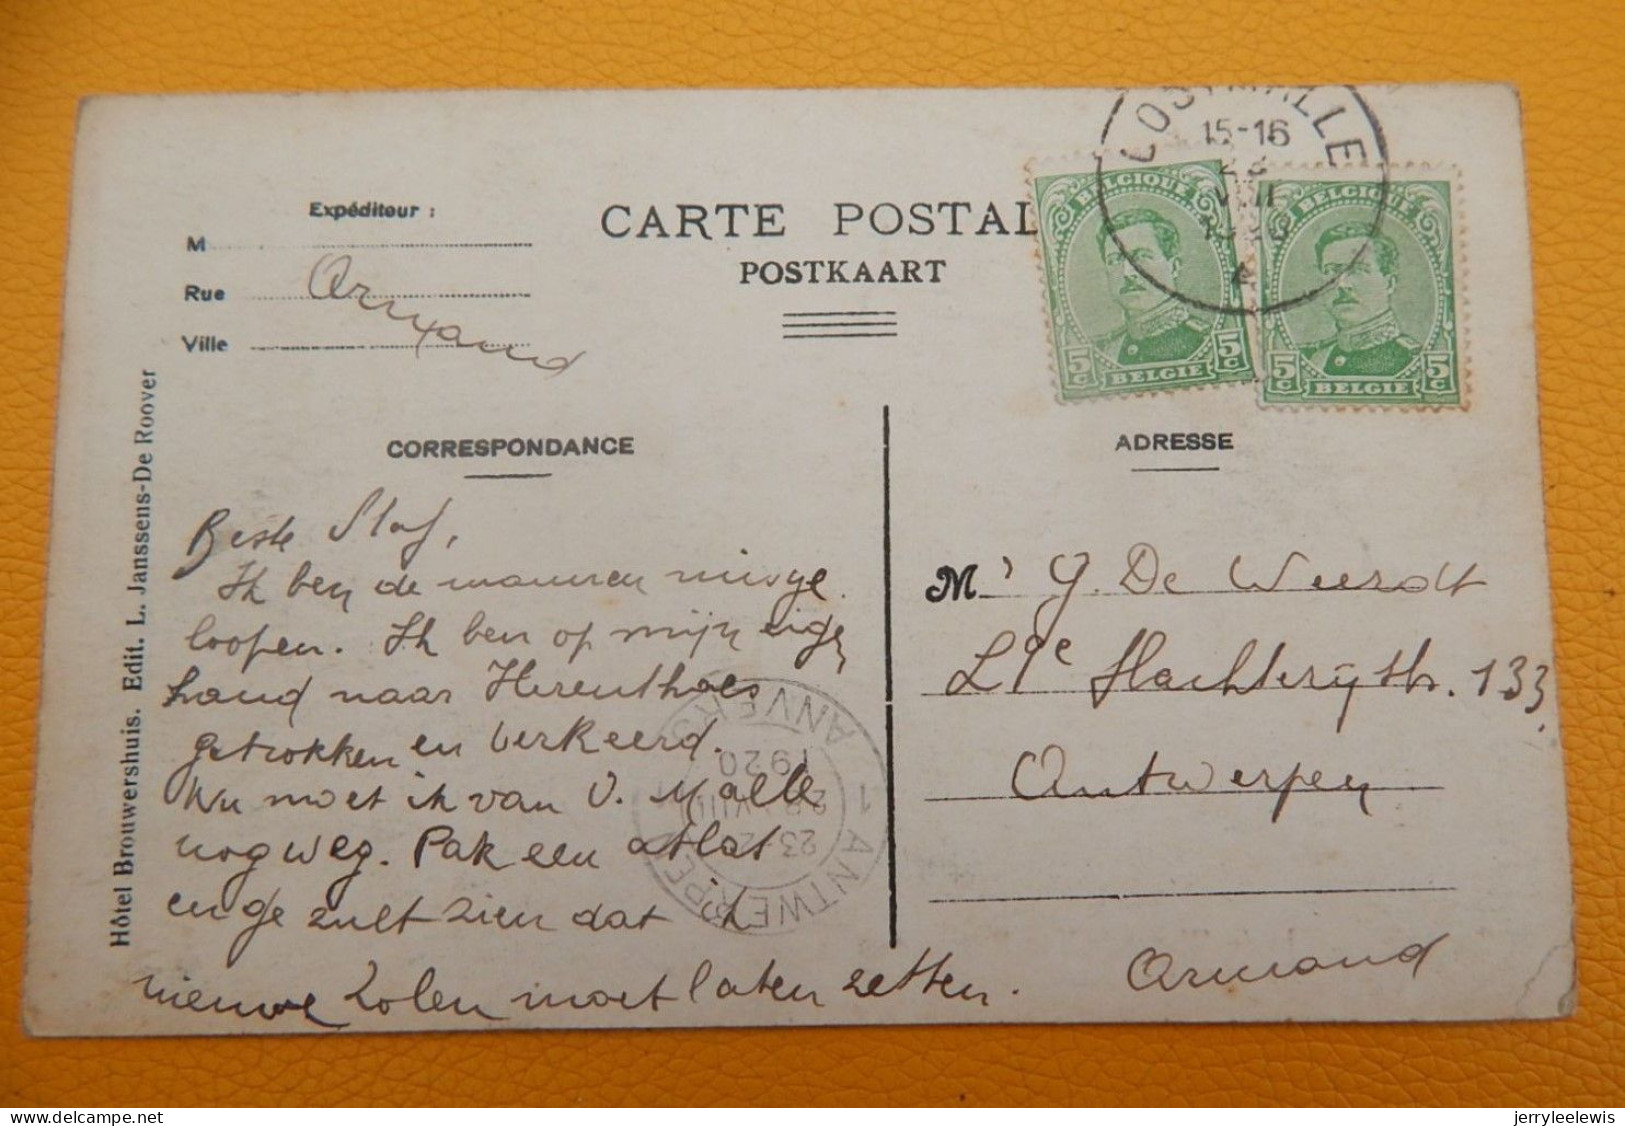 OOSTMALLE
15-16
VIII
Expéditeur :
CARTE POSTAL
POSTKAART
M
Rue
Ville
Armand
BELGIQUE
5c 5c
BELGIE
BELGIQUE
5c 5c
BELGIE
CORRESPONDANCE
ADRESSE
Hôtel Brouwershuis. Edit. L. Janssens-De Roover
Beste Staf,
Ik ben de mannen misge
loopen. Ik ben op mijn eige
hand naar Herenthals
getrokken en verkeerd.
Nu moet ik van O. Malle
nog weg. Pak een atlas
en ge zult zien dat k
nieuwe zolen moet laten zetten.
M' G. De Weerdt
Lge Slachterijstr. 133.
Antwerpen
Armand
1 ANTWERPEN ANVERS
23
VIII
1920
jerryleelewis